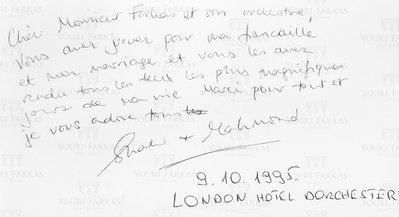 Cher Monsieur Farkas et son orchestre,
Vous avez jouer pour ma fiancaille
et mon marriage et vous les avez
rendu tous les deux les plus magnifiques
jours de ma vie Merci pour tout et
je vous adore tous
+ Mahmoud
9.10.1995.
LONDON HÔTEL DORCHESTER
YOURI FARKAS